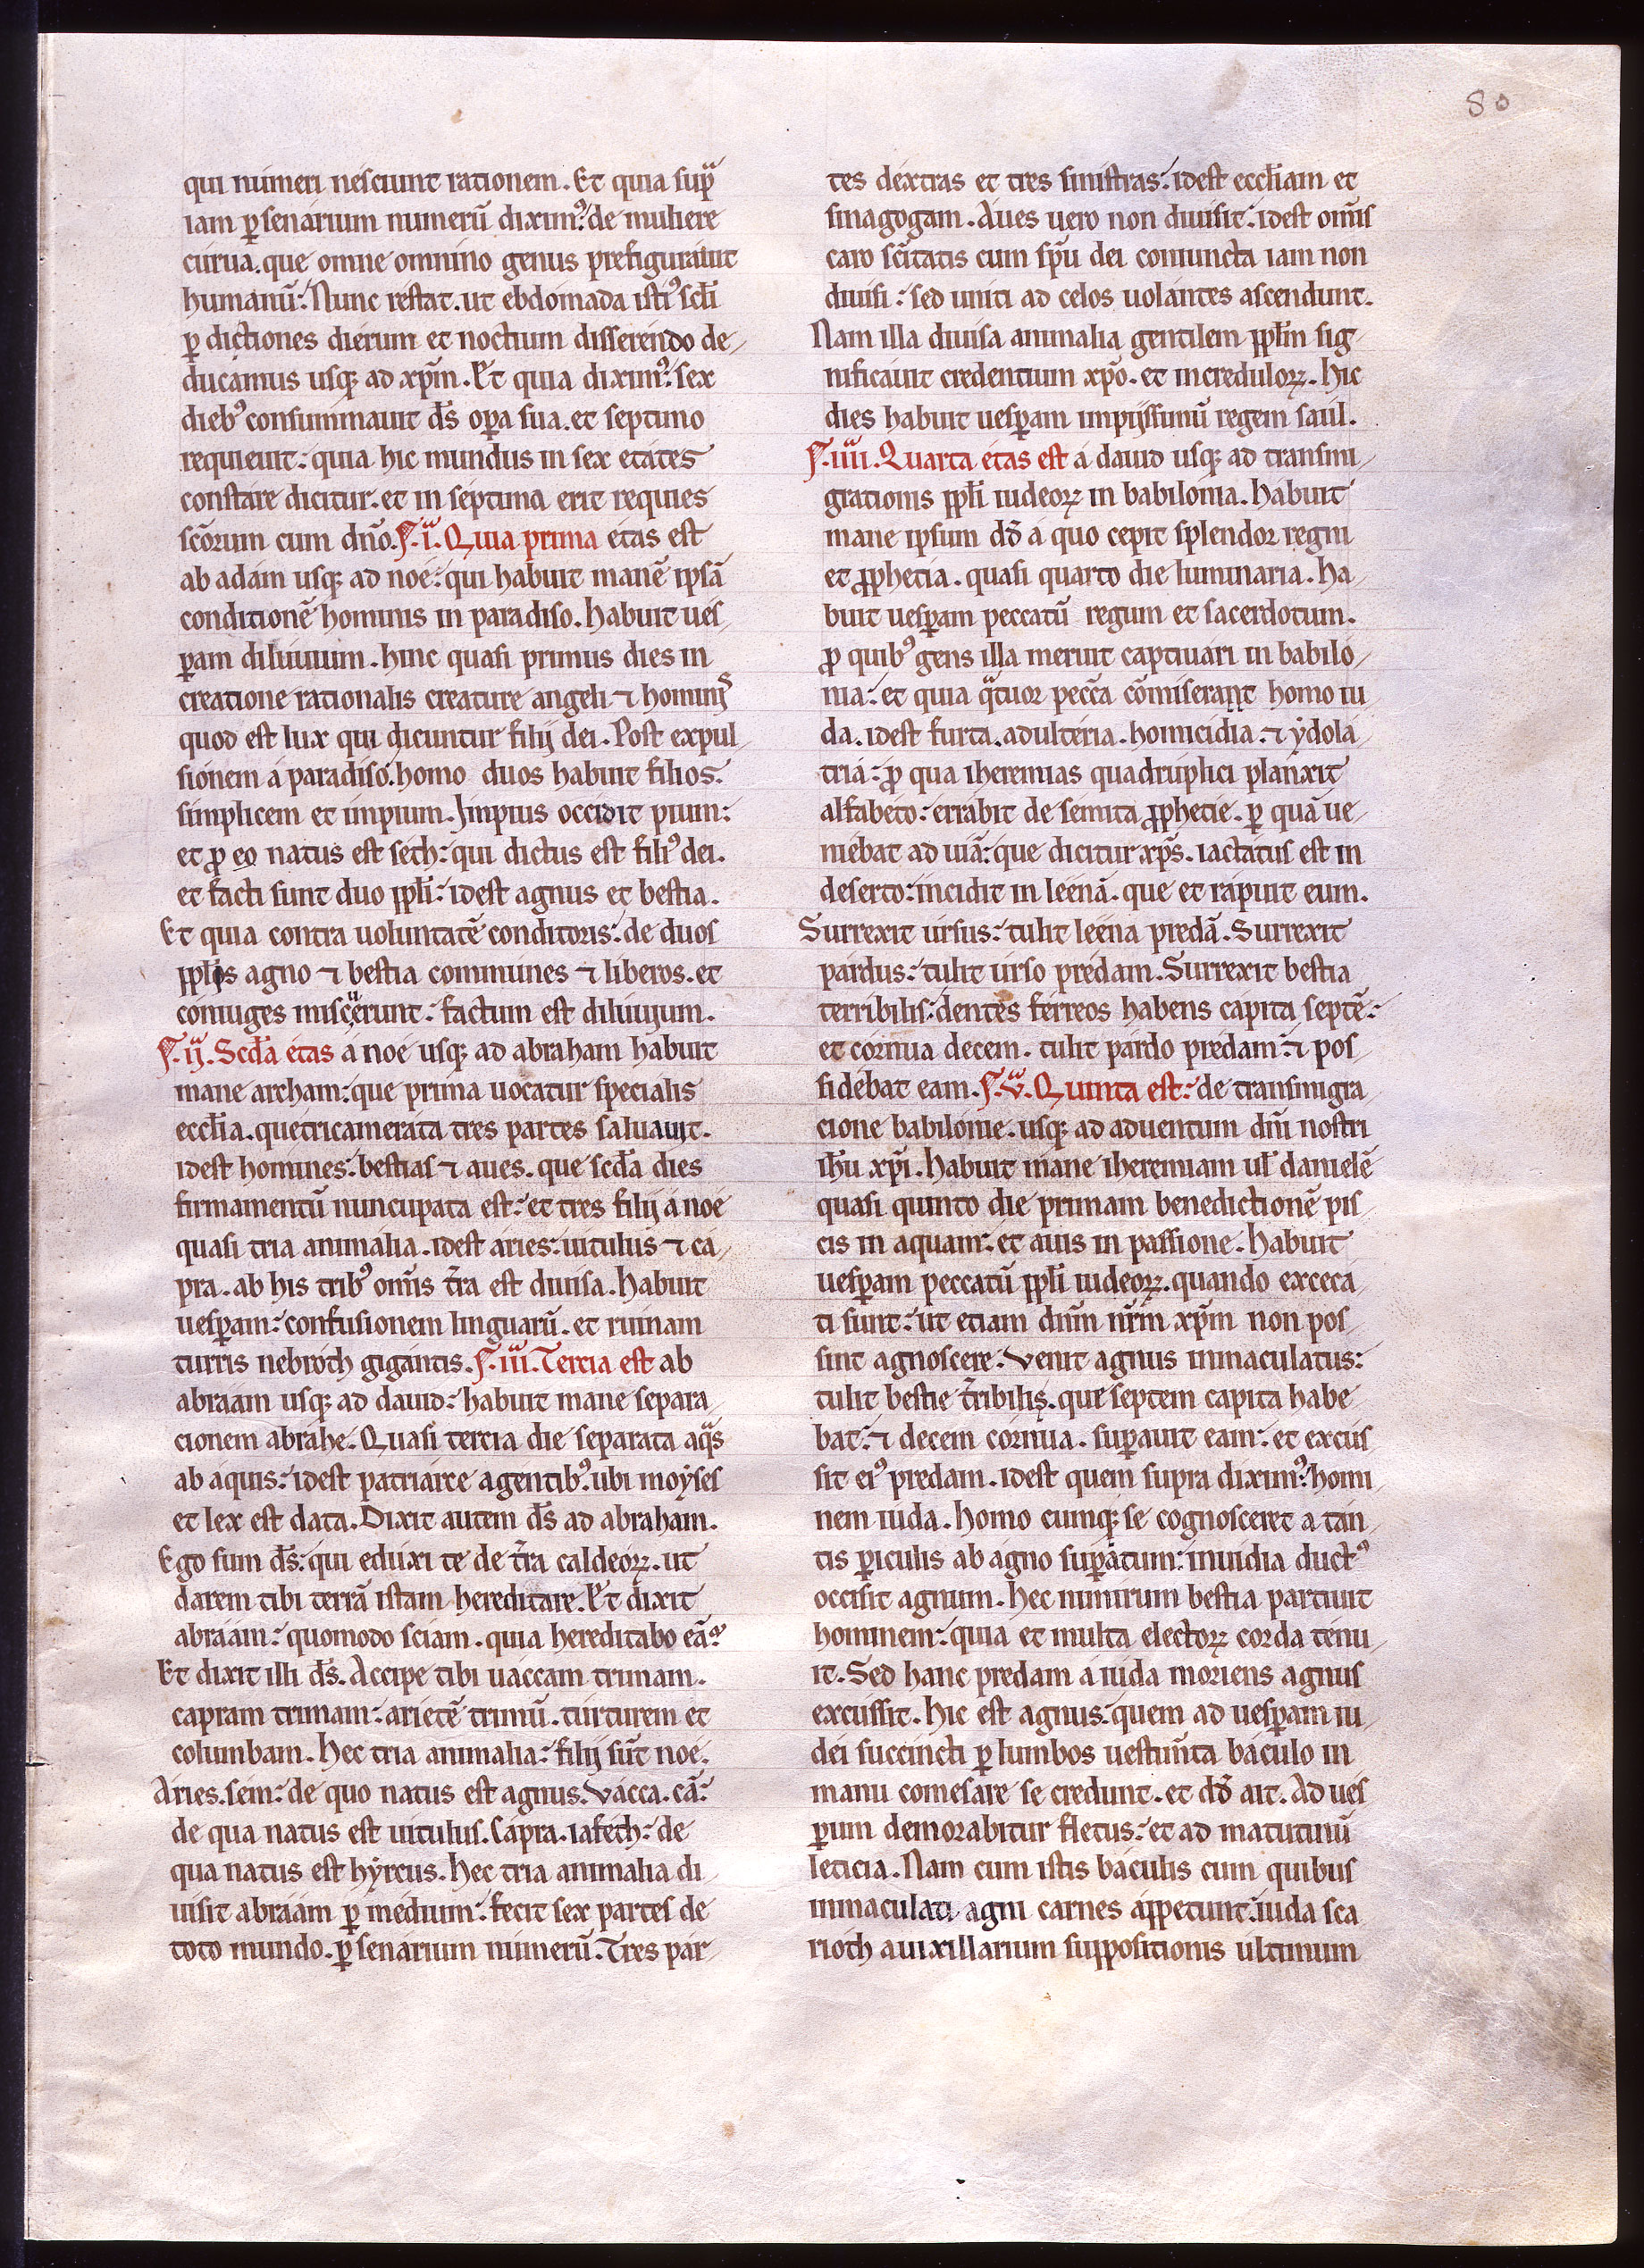 80
qui numeri nesciunt rationem. Et quia sup̃
iam ꝑ senarium numerũ diximꝰ: de muliere
curua. que omne omnino genus prefigurauit
humanũ: Nunc restat. ut ebdomada istiꝰ scłi
ꝑ dictiones dierum et noctium disserendo de-
ducamus usqꝫ ad xp̃m. Et quia diximꝰ: sex
diebꝰ consummauit ds̃ oꝑa sua. et septimo
requieuit: quia hic mundus in sex etates
constare dicitur. et in septima erit requies
scõrum cum dño. §.i. Quia prima etas est
ab adam usqꝫ ad noe: qui habuit manẽ ipsã
conditionẽ hominis in paradiso. Habuit ues-
ꝑam diluuium. hinc quasi primus dies in
creatione rationalis creature angeli ⁊ hominis
quod est lux qui dicuntur filij dei. Post expul-
sionem a paradiso: homo duos habuit filios:
simplicem et impium. Impius occidit pium:
et ꝓ eo natus est seth: qui dictus est filiꝰ dei.
et facti sunt duo ppłi: idest agnus et bestia.
Et quia contra uoluntatẽ conditoris: de duos
ppłis agno ⁊ bestia communes ⁊ liberos. et
coniuges miscuerunt: factum est diluuium.
§.ij. Scda etas a noe usqꝫ ad abraham habuit
mane archam: que prima uocatur specialis
eccłia. que tricamerata tres partes saluauit.
idest homines: bestias ⁊ aues. que scda dies
firmamentũ nuncupata est: et tres filij a noe
quasi tria animalia. idest aries: uitulus ⁊ ca-
pra. ab his tribꝰ omĩs t̃ra est diuisa. Habuit
uesꝑam: confusionem linguarũ. et ruinam
turris nebroth gigantis. §.iii. Tercia est ab
abraam usqꝫ ad dauid: habuit mane separa-
cionem abrahe. Quasi tercia die separata aqᵃs
ab aquis: idest patriarce a gentibꝰ: ubi moyses
et lex est data. Dixit autem ds̃ ad abraham.
Ego sum ds̃: qui eduxi te de t̃ra caldeoꝝ. ut
darem tibi terrã istam hereditare. Et dixit
abraam: quomodo sciam. quia hereditabo eã?
Et dixit illi ds̃. Accipe tibi uaccam trimam.
capram trimam: arietẽ trimũ. turturem et
columbam. Hec tria animalia: filij sũt noe.
Aries. sem: de quo natus est agnus. Vacca. cã:
de qua natus est uitulus. Capra. iafeth: de
qua natus est hyrcus. Hec tria animalia di-
uisit abraam ꝑ medium: fecit sex partes de
toto mundo. ꝑ senarium numerũ. Tres par-
tes dextras et tres sinistras: idest eccłiam et
sinagogam. Aues uero non diuisit: idest omĩs
caro scĩtatis cum spũ dei coniuncta iam non
diuisi: sed uniti ad celos uolantes ascendunt.
Nam illa diuisa animalia gentilem ppłm sig-
nificauit credentium xp̃o. et increduloꝝ. Hic
dies habuit uesꝑam impijssimũ regem saul.
§.iiii. Quarta etas est a dauid usqꝫ ad transmi-
grationis ppłi iudeoꝝ in babilonia. Habuit
mane ipsum dd̃ a quo cepit splendor regni
et ꝓphetia. quasi quarto die luminaria. Ha-
buit uesꝑam peccatũ regum et sacerdotum.
ꝓ quibꝰ gens illa meruit captiuari in babilo-
nia: et quia qᵃtuor pecc̃a cõmiserant homo iu-
da. idest furta. adulteria. homicidia. ⁊ ydola-
tria: ꝓ qua iheremias quadruplici planxit
alfabeto: errabit de semita ꝓphetie. ꝑ quã ue-
niebat ad uiã: que dicitur xp̃s. iactatus est in
deserto: incidit in leenã. que et rapuit eum.
Surrexit ursus: tulit leena predã. Surrexit
pardus: tulit urso predam. Surrexit bestia
terribilis: dentes ferreos habens capita septẽ:
et cornua decem. tulit pardo predam: ⁊ pos-
sidebat eam. §.v. Quinta est: de transmigra-
cione babilonie. usqꝫ ad aduentum dñi nostri
ihũ xp̃i. Habuit mane iheremiam uł danielẽ
quasi quinto die primam benedictionẽ pis-
cis in aquam: et auis in passione. Habuit
uesꝑam peccatũ ppłi iudeoꝝ. quando exceca-
ti sunt: ut etiam dñm nr̃m xp̃m non pos-
sint agnoscere. Venit agnus inmaculatus:
tulit bestie t̃ribilis. que septem capita habe-
bat: ⁊ decem cornua. suꝑauit eam: et excus-
sit eiꝰ predam. idest quem supra diximꝰ: homi-
nem iuda. Homo cumqꝫ se cognosceret a tan-
tis ꝑiculis ab agno suꝑatum: inuidia ductꝰ
occisit agnum. Hec nimirum bestia partiuit
hominem: quia et multa electoꝝ corda tenu-
it. Sed hanc predam a iuda moriens agnus
excussit. Hic est agnus: quem ad uesꝑam iu-
dei succincti ꝑ lumbos uestim̃ta baculo in
manu comesare se credunt. et dd̃ ait. Ad ues-
ꝑum demorabitur fletus: et ad matutinũ
leticia. Nam cum istis baculis cum quibus
inmaculati agni carnes appetunt: iuda sca-
rioth auixillarium suppositionis ultimum